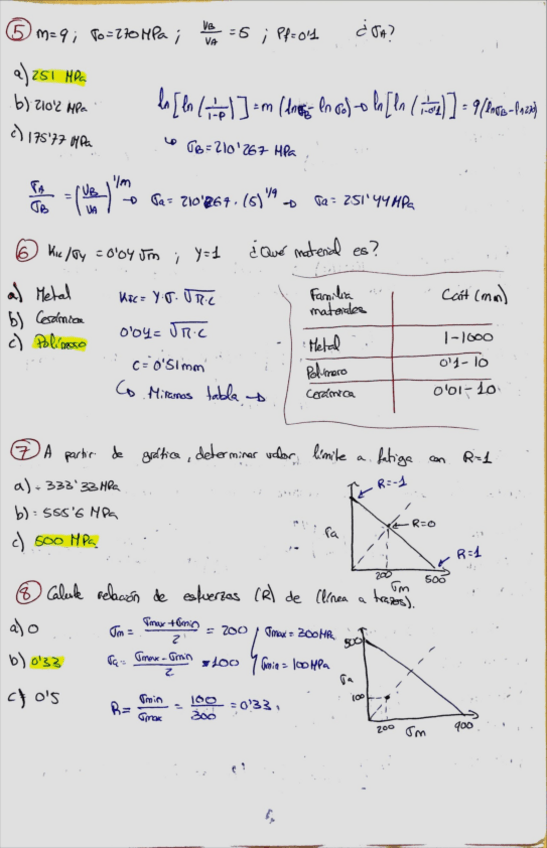 5 m=9 ; σ0=270MPa ; VB/VA = 5 ; Pf=0'1 ¿σA?
a) 251 MPa
b) 210'2 MPa
c) 175'77 MPa
ln[ln(1/1-P)] = m (lnσB - lnσ0) → ln[ln(1/1-0'1)] = 9(lnσB - ln270)
↳ σB = 210'267 MPa
σA/σB = (VB/VA)^1/m → σa = 210'267 · (5)^1/9 → σa = 251'44 MPa
6 KIC/σy = 0'04 √m ; Y=1 ¿Qué material es?
a) Metal
b) Cerámica
c) Polímero
KIC = Y·σ·√π·c
0'04 = √π·c
c = 0'51mm
↳ Miramos tabla →
Familia materiales Crit (mm)
Metal 1-1000
Polímero 0'1-10
Cerámica 0'01-10
7 A partir de gráfica, determinar valor límite a fatiga con R=1
a) 333'33 MPa
b) 555'6 MPa
c) 500 MPa
R=-1
R=0
R=1
σa
200 σm 500
8 Calcule relación de esfuerzas (R) de (línea a trazos).
a) 0
b) 0'33
c) 0'5
σm = σmax+σmin/2 = 200
σa = σmax-σmin/2 = 100
σmax = 300MPa
σmin = 100MPa
R = σmin/σmax = 100/300 = 0'33
500
σa
100
200 σm 900